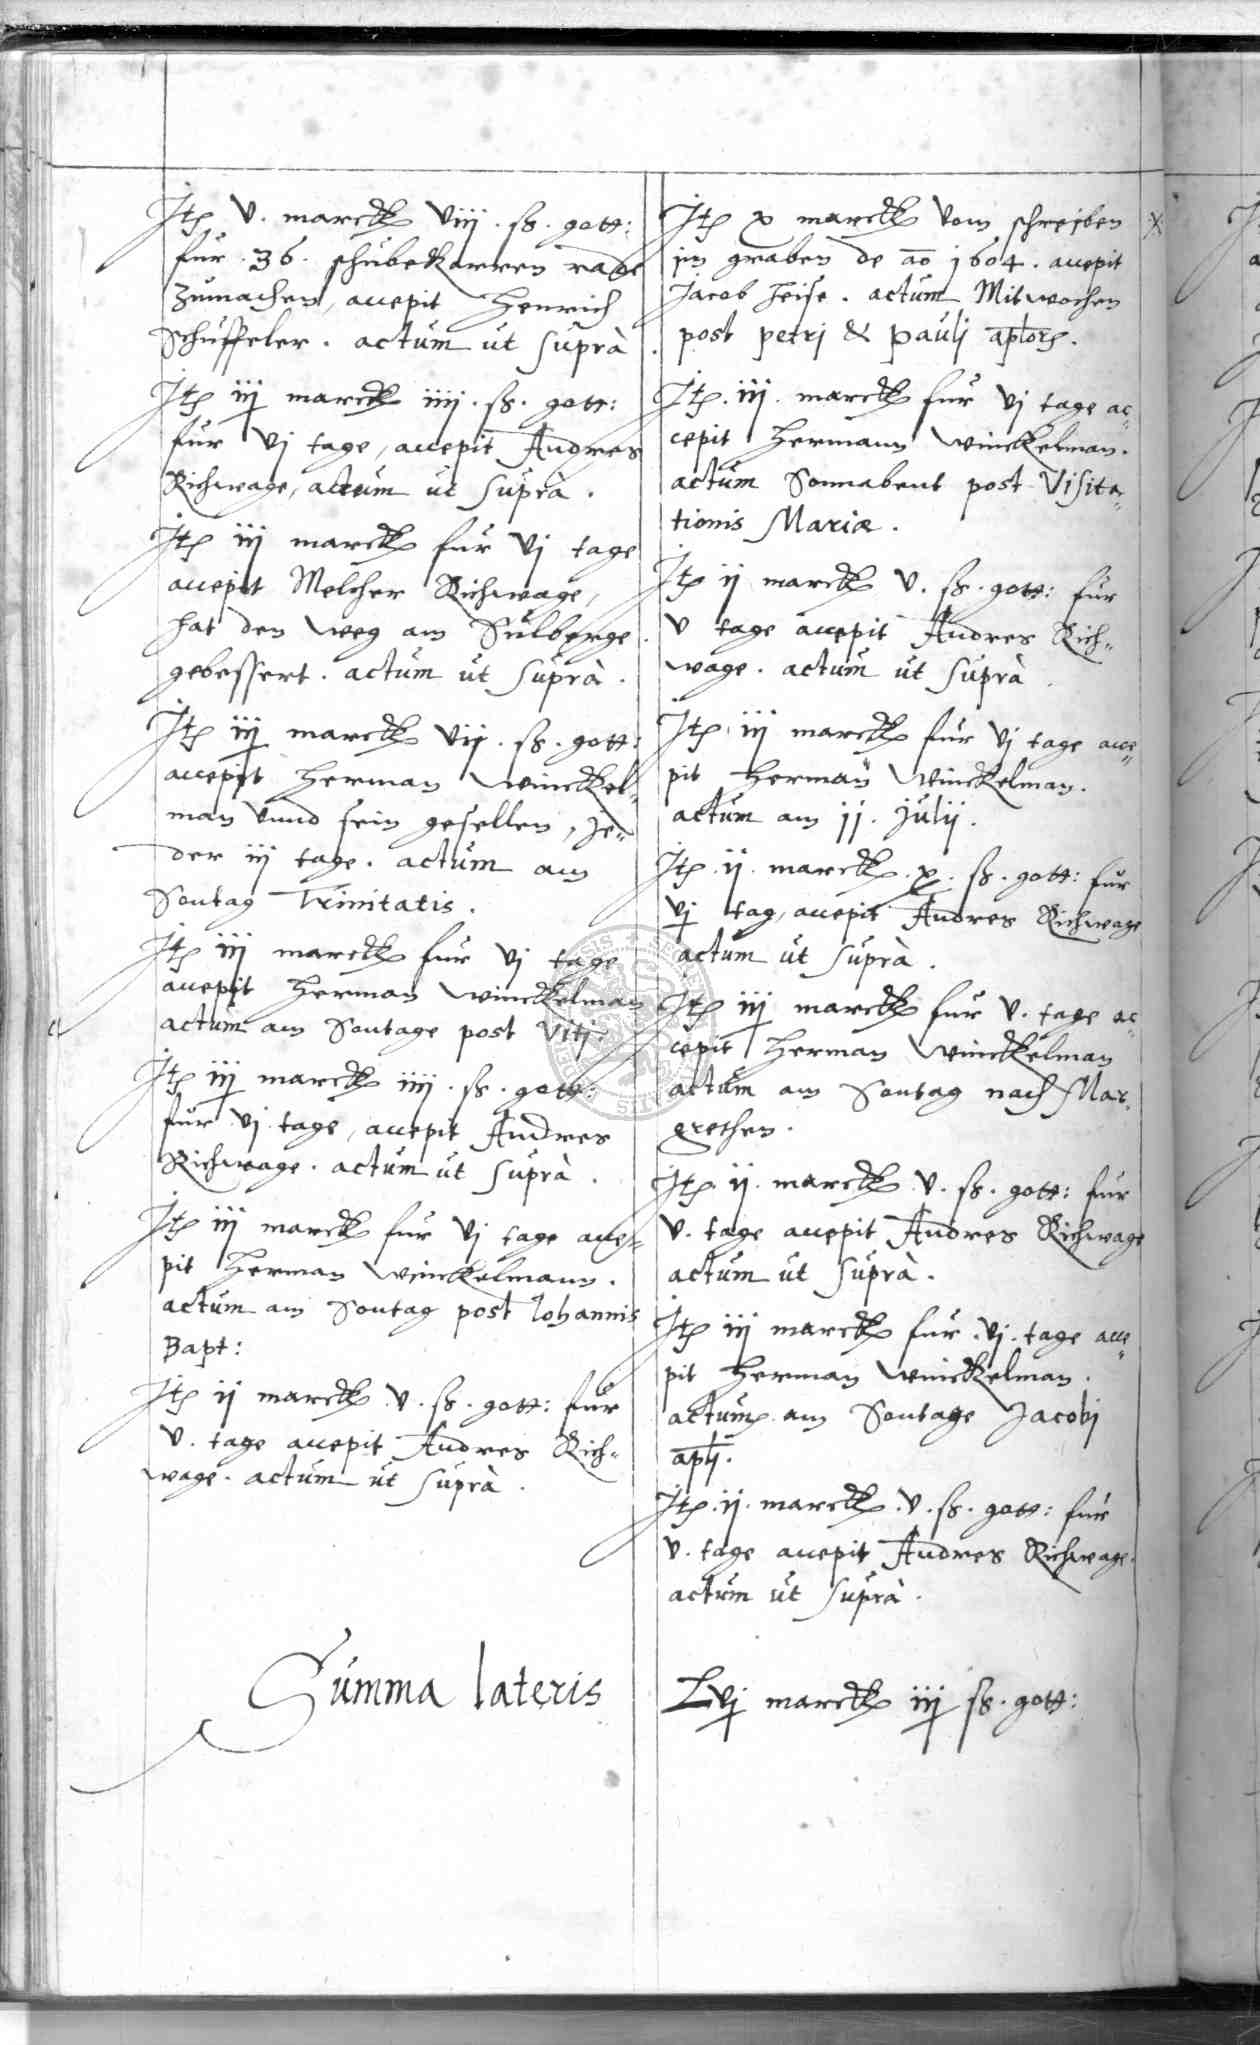 Jtem v. marck viij. ß. gott:
fur. 36. schubekarren rade
zumachen, accepit Henrich
Schuffeler. actum ut suprà
Jtem iij marck iiij. ß. gott:
fur vj tage, accepit Andres
Richwage, actum ut suprà.
Jtem iij marck fur vj tage
accepit Melcher Richwage,
hat den weg am Sulberge
gebessert. actum ut suprà.
Jtem iij marck vij. ß. gott:
accepit Herman Winckel-
man vnnd sein gesellen, Je-
der iij tage. actum am
Sontag Trinitatis.
Jtem iij marck fur vj tage
accepit Herman Winckelman
actum am Sontage post Vitj.
Jtem iij marck iiij. ß. gott:
fur vj tage, accepit Andres
Richwage. actum ut suprà.
Jtem iij marck fur vj tage acce-
pit Herman Winckelmann.
actum am Sontag post Johannis
Bapt:
Jtem ij marck v. ß. gott: fur
v. tage accepit Andres Rich-
wage. actum ut suprà.
Jtem x marck vom schreiben
jm graben de ao 1604. accepit
Jacob Heise. actum Mitwochen
post petrj & paulj aplorum.
Jtem. iij. marck fur vj tage ac-
cepit Hermann Winckelman.
actum Sonnabent post Visita-
tionis Mariæ.
Jtem ij marck v. ß. gott: fur
v tage accepit Andres Rich-
wage. actum ut suprà.
Jtem iij marck fur vj tage acce-
pit Herman Winckelman.
actum am jj. Julij.
Jtem. ij. marck. x. ß. gott: fur
vj tag, accepit Andres Richwage
actum ut suprà.
Jtem iij marck fur v. tage ac-
cepit Herman Winckelman
actum am Sontag nach Mar-
grethen.
Jtem ij. marck v. ß. gott: fur
v. tage accepit Andres Richwage
actum ut suprà.
Jtem iij marck fur. vj. tage acce-
pit Herman Winckelman.
actum am Sontage Jacobj
aplj.
Jtem. ij. marck. v. ß. gott: fur
v. tage accepit Andres Richwage.
actum ut suprà.
Summa lateris
Lvj marck iij ß. gott: